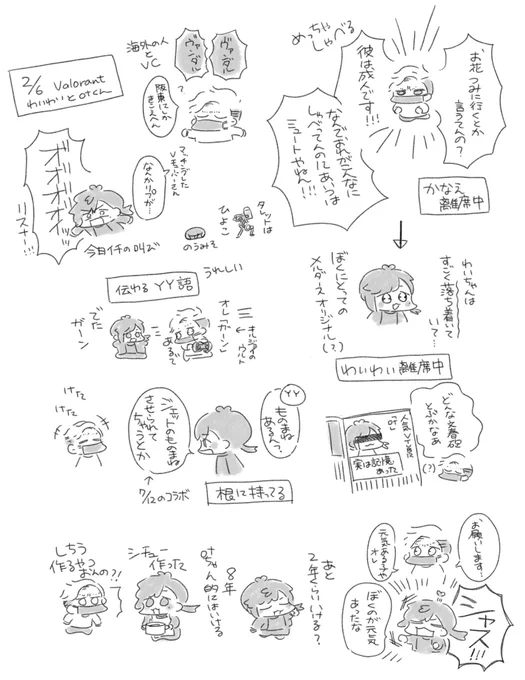 2/6 Valorant
わいわいとOtCん
海外の人
と
VC
ヴァン
ダル
ヴァー
ダル
阪東にしか
きこえん
マッチングした
Vチューバーさん
なんかリプが…
オオオオオ
リスナー!!!
今日イチの叫び
のうみそ
ひよこ
タレットは
めっちゃ
しゃべる
お花つみに行くとか
言うてんの?
彼は成人です!!!
なんでおれが大なに
しゃべってんのにあいつは
ミュートやねん!!!
かなえ
離席中
わいちゃんは
すごく落ち着いて
いて…
ぼくにとっての
メルダーズオリジナル(?)
わいわい離席中
伝わるYY語
うれしい
でた
ガーン
オレ「ガーン」
あるで
キルジョイの
ウルト
けた
けた
YY
ものまね
あるん?
ジェットのものまね
させられて
ちゃうとか
7/12のコラボ
根に持ってる
どんな番組
とぶかなあ
(?)
人気VTuber
実は記憶
あった
しちう
作るやつ
おんの?!
シチュー
作った
8年
ちゃん的にはいける
あと
2年くらいいける?
お願いします…
元気ある子や
オレ
シャス!!!
ぼくのが元気
あったな